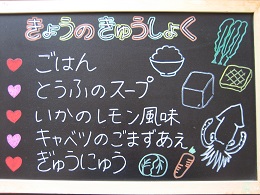 きょうの きゅうしょく
ごはん
とうふのスープ
いかのレモン風味
キャベツのごまずあえ
ぎゅうにゅう